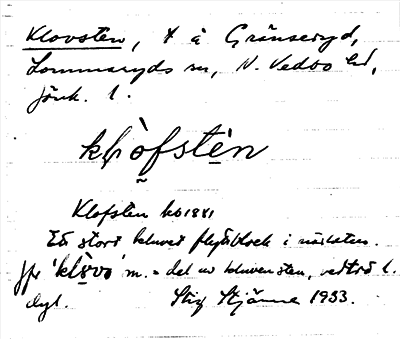 Klovsten, t å Gränseryd,
Lommaryds sn, N. Vedbo hd,
Jönk. l.
klòfstèn
Klofsten hb 1881
Ett stort kluvet flyttblock i närheten.
Jfr 'klåvå' m. = del av kluven sten, vedträ l.
dyl. Stig Stjärne 1933.